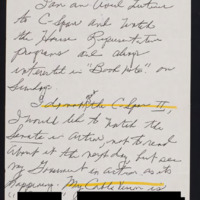 I am an avid listener
to C-Span and watch
the House Representative
programs and always
interested in "Book Note" on
Sunday.
I do not get the C-Span II,
I would like to watch the
Senate in action, not to read
about it the next day but see
my Government in action as its
happening. My Cable Vision is